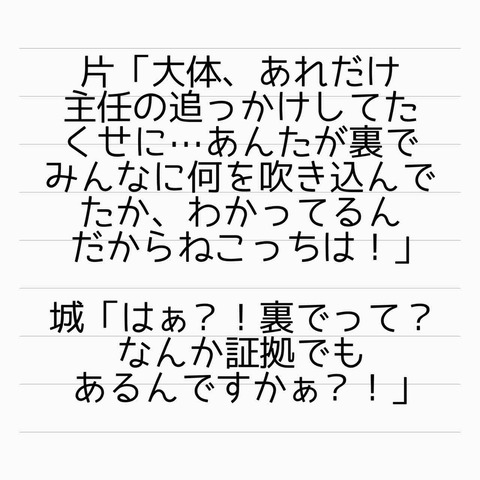 片「大体、あれだけ
主任の追っかけしてた
くせに…あんたが裏で
みんなに何を吹き込んで
たか、わかってるん
だからねこっちは！」
城「はぁ？！裏でって？
なんか証拠でも
あるんですかぁ？！」